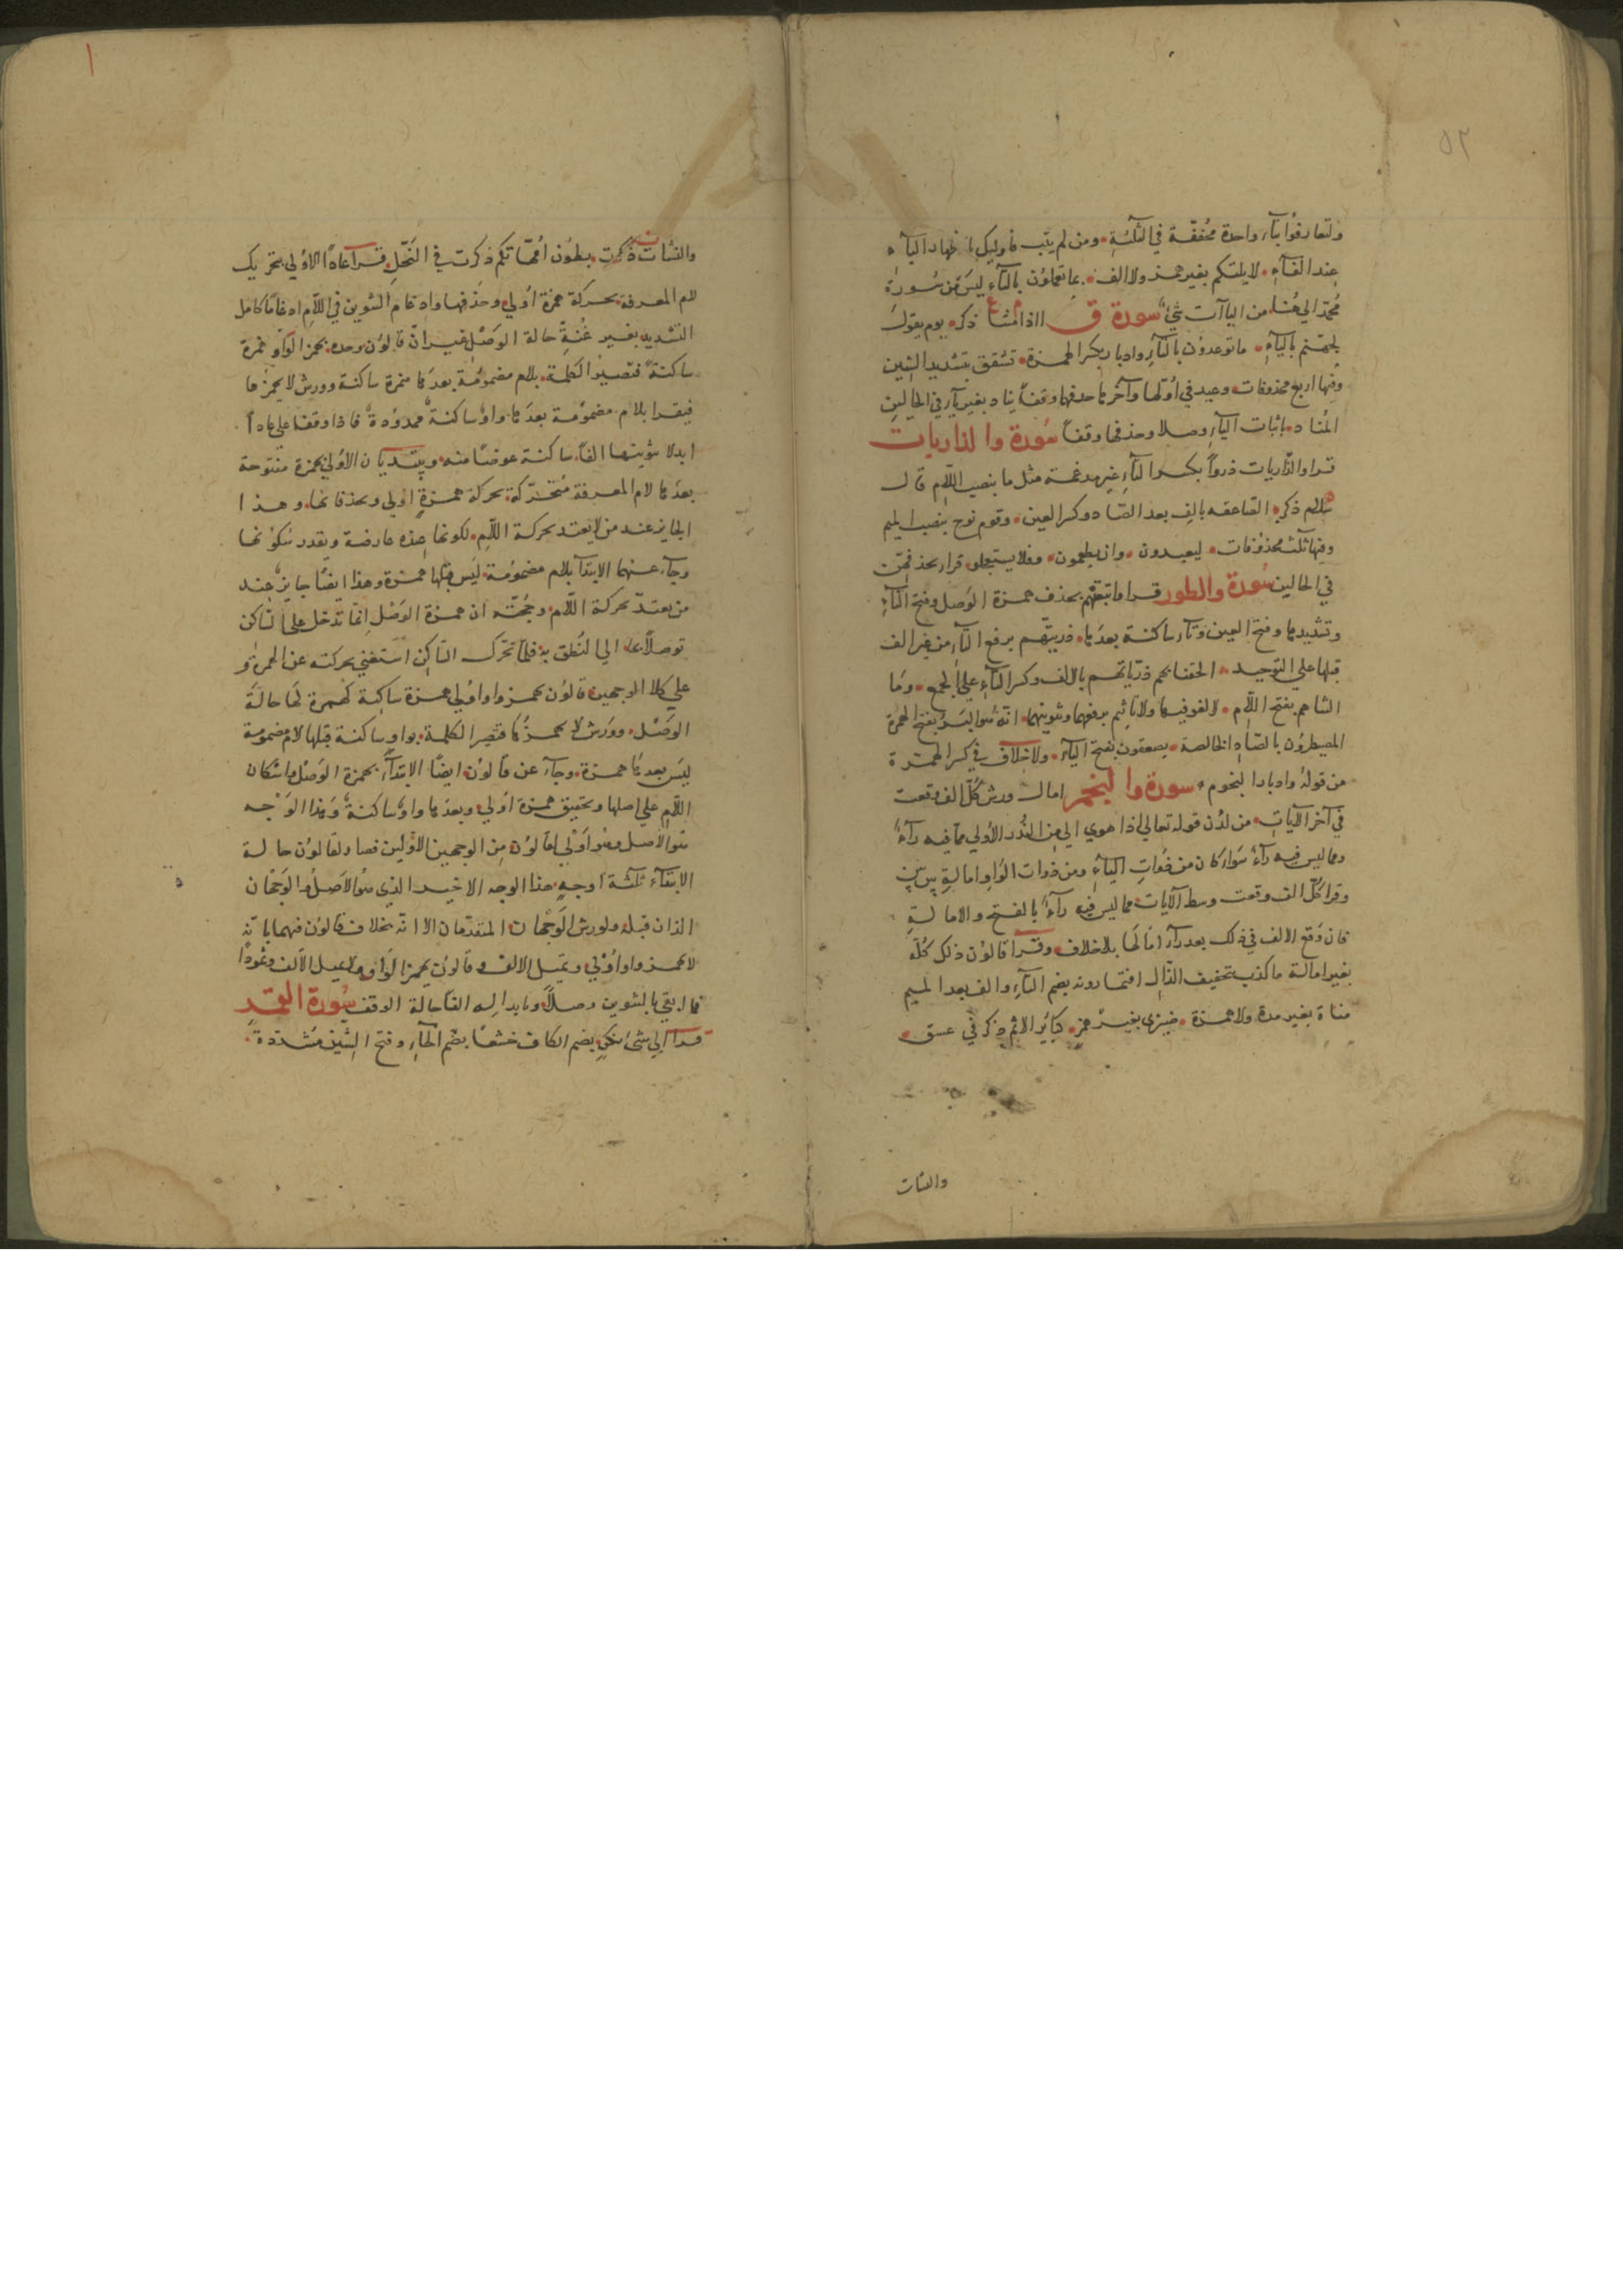 ٥٢
ولتعارفوا بتآء واحدة مخففة في الثلثة ومن لم يتب فاوليك اظهار البآء
عند الفآء لا يلتكم بغير همز ولا الف بما تعملون بالتآء ليس من سورة
محمد الي هنا من الياآت شيء سورة ق ااذا متنا ذكر يوم يقول
لجهنم باليآء ما توعدون بالتآء وادبار بكسر الهمزة تشقق بتشديد الشين
وفيها اربع محذوفات وعيد في اولها وآخرها حذفها وقفا يناد بغير يآء في الحالين
المناد باثبات اليآء وصلا وحذفها وقفا سورة والذاريات
قرا والذاريات ذروا بكسر التآء غير مدغمة مثل ما بنصب اللام قال
سلام ذكر الصاعقة بالف بعد الصاد وكسر العين وقوم نوح بنصب الميم
وفيها ثلث محذوفات ليعبدون وان يطعمون وفلا يستعجلون قرا بحذفهن
في الحالين سورة والطور قرا واتبعتهم بحذف همزة الوصل وفتح التآء
وتشديدها وفتح العين وتآء ساكنة بعدها ذريتهم برفع التآء من غير الف
قبلها علي التوحيد الحقنا بهم ذرياتهم بالالف وكسر التآء علي الجمع وما
التناهم بفتح اللام لا لغو فيها ولا تاثيم برفعهما وتنوينهما انه هو البر بفتح الهمزة
المصيطرون بالصاد الخالصة يصعقون بفتح اليآء ولا خلاف في كسر الهمزة
من قوله وادبار النجوم سورة والنجم امال ورش كل الف وقعت
في آخر الآيات من لدن قوله تعالي اذا هوي الي من النذر الاولي مما فيه رآء
ومما ليس فيه رآء سوآء كان من ذوات اليآء ومن ذوات الواو امالة بين بين
وقرا كل الف وقعت وسط الآيات مما ليس فيه رآء بالفتح والامالة
فان وقع الالف في ذلك بعد رآء امالها بلا خلاف وقرا قالون ذلك كله
بغير امالة ما كذب بتخفيف الذال افتمارونه بضم التآء والف بعد الميم
مناة بغير مدة ولا همزة ضيزي بغير همز كبائر الاثم ذكر في عسق
والنشات
١
والنشات ذكرت بطون امهاتكم ذكرت في النحل قرآ عادا الاولي بتحريك
لام المعرفة بحركة همزة اولي وحذفها وادغام التنوين في اللام ادغاما كامل
التشديد بغير غنة حالة الوصل غير ان قالون وحده بهمز الواو همزة
ساكنة فتصير الكلمة بلام مضمومة بعدها همزة ساكنة وورش لا يهمزها
فيقرا بلام مضمومة بعدها واو ساكنة ممدودة فاذا وقفا علي عادا
ابدلا تنوينها الفا ساكنة عوضا منه ويبتديان الاولي بهمزة مفتوحة
بعدها لام المعرفة متحركة بحركة همزة اولي وبحذفانها وهذا
الجايز عند من لا يعتد بحركة اللام لكونها عنده عارضة ويقدر سكونها
وجآء عنهما الابتدآ بلام مضمومة ليس قبلها همزة وهذا ايضا جايز عند
من يعتد بحركة اللام وحجته ان همزة الوصل انما تدخل علي الساكن
توصلا بها الي النطق به فلما تحرك الساكن استغني بحركته عن الهمزة و
علي كلا الوجهين قالون بهمز واو اولي همزة ساكنة كهمزة لها حالة
الوصل وورش لا يهمزها فتصير الكلمة بواو ساكنة قبلها لام مضمومة
ليس بعدها همزة وجآء عن قالون ايضا الابتدآء بهمزة الوصل واسكان
اللام علي اصلها وتحقيق همزة اولي وبعدها واو ساكنة وهذا الوجه
هو الاصل وهو اولي لقالون من الوجهين الاولين فصار لقالون حالة
الابتدآء ثلثة اوجه هذا الوجه الاخير الذي هو الاصل والوجهان
الذان قبله ولورش الوجهان المتقدمان الا انه بخلاف قالون فيهما بانه
لا يهمز واو اولي ويميل الالف وقالون يهمز الواو ولا يميل الالف وثمودا
فما ابقي بالتنوين وصلا وبابداله الفا حالة الوقف سورة القمر
قرآ الي شيء نكر بضم الكاف خشعا بضم الخآء وفتح الشين مشددة